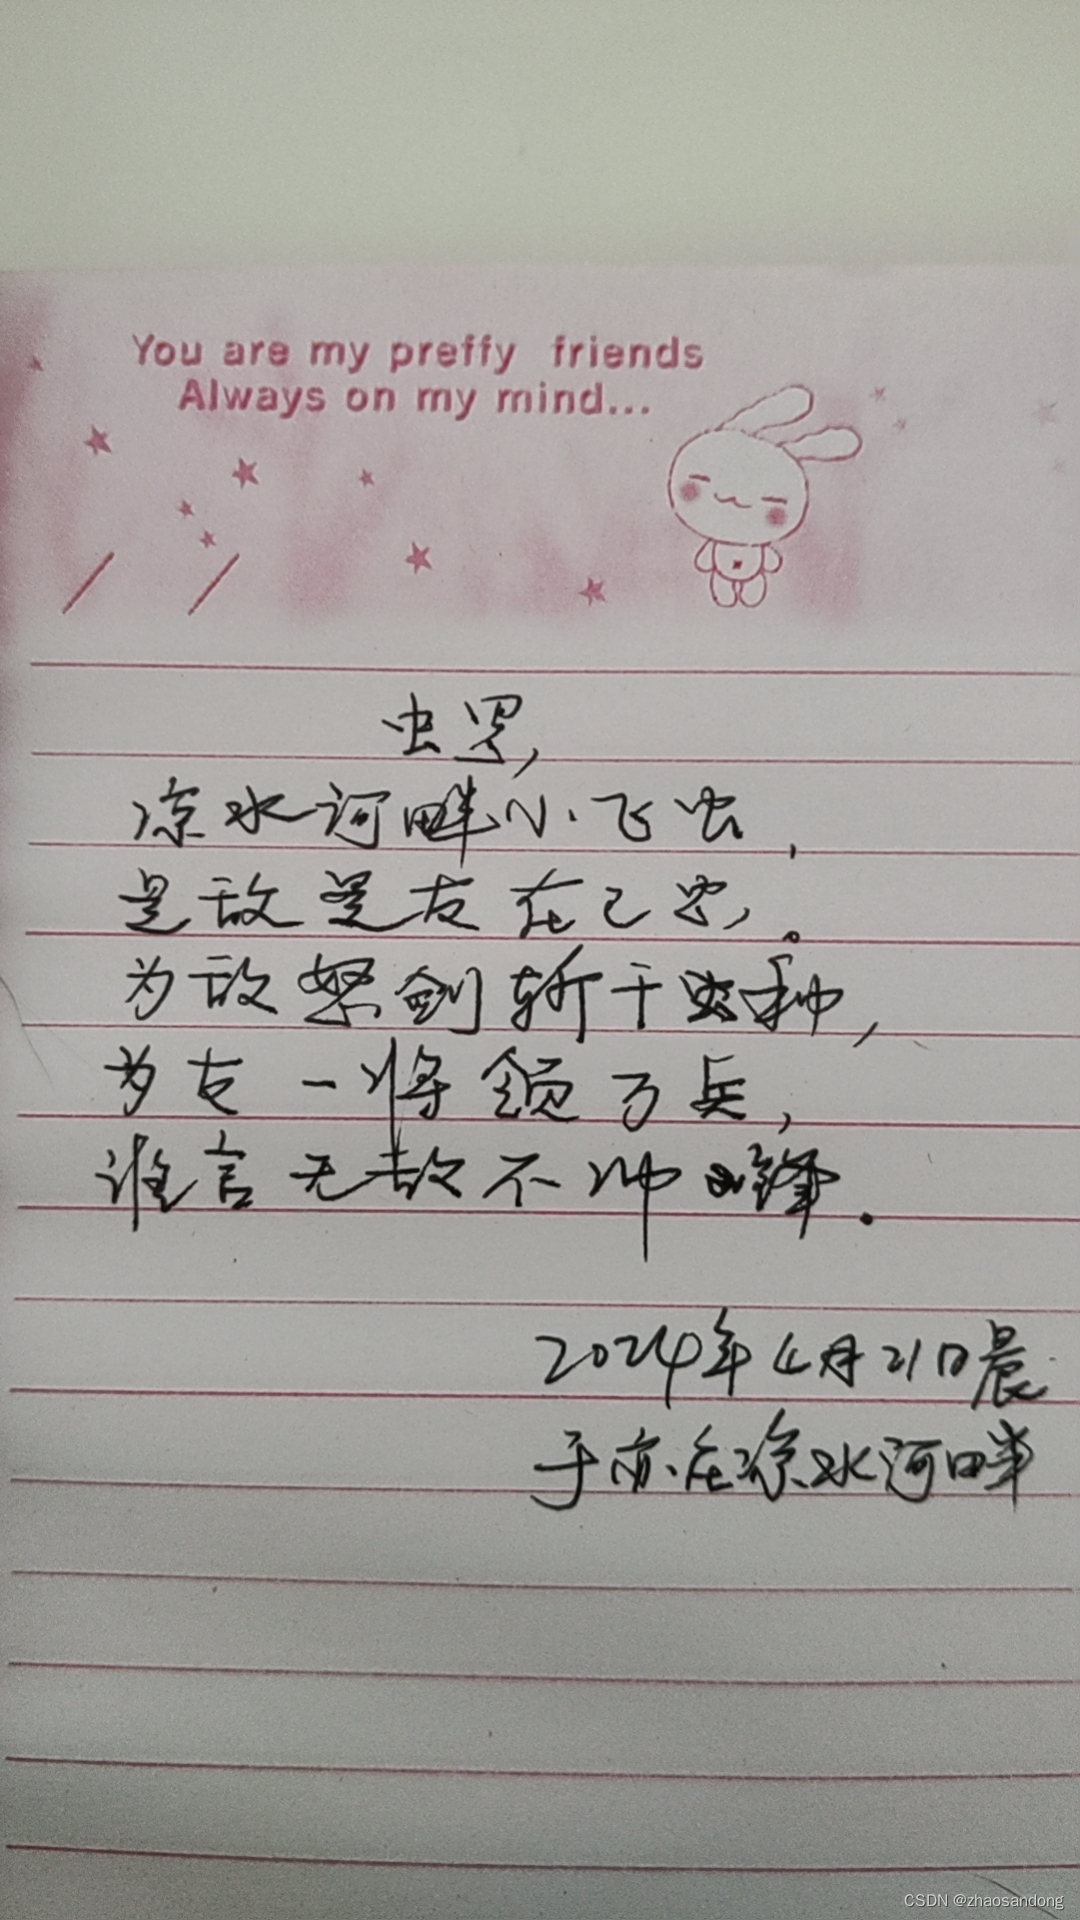 You are my preffy friends
Always on my mind...
凉水河畔小飞虫,
是敌是友在己
为敌怒剑斩千种,
为友一将领万兵,
谁言无敌不帅锋.
2024年4月21日晨
于亦庄凉水河畔
CSDN @zhaosandong